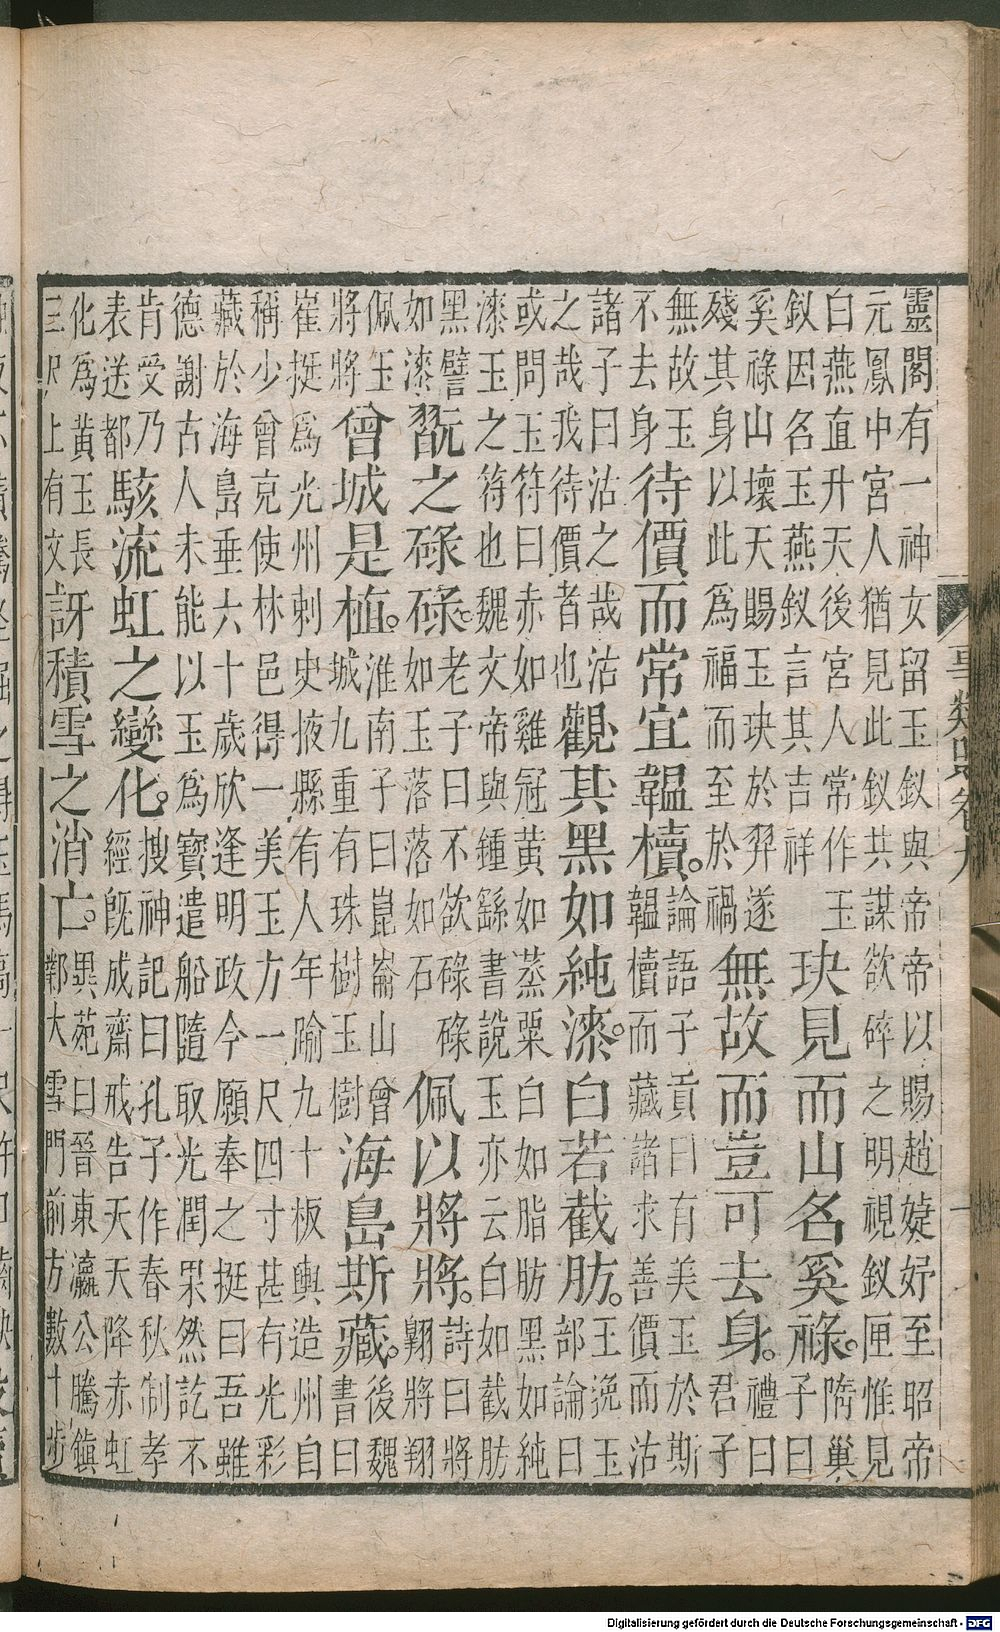 靈閣有一神女留玉釵與帝帝以賜趙婕妤至昭帝
元鳳中宮人猶見此釵共謀欲碎之明視釵匣惟見
白燕直升天後宮人常作玉
釵因名玉燕釵言其吉祥
玦見而山名奚祿。
隋巢
子曰
奚祿山壞天賜玉玦於羿遂
殘其身以此為福而至於禍
無故而豈可去身。
禮曰
君子
無故玉
不去身
待價而常宜韞櫝。
論語子貢曰有美玉於斯
韞櫝而藏諸求善價而沽
諸子曰沽之哉沽
之哉我待價者也
觀其黑如純漆。白若截肪。
王逸玉
部論曰
或問玉符曰赤如雞冠黃如蒸粟白如脂肪黑如純
漆玉之符也魏文帝與鍾繇書說玉亦云白如截肪
黑譬
如漆
翫之碌碌。
老子曰不欲碌碌
如玉落落如石
佩以將將。
詩曰將
翱將翔
佩玉
將將
曾城是植。
淮南子曰崑崙山曾
城九重有珠樹玉樹
海島斯藏。
後魏
書曰
崔挺為光州刺史掖縣有人年踰九十板輿造州自
稱少曾克使林邑得一美玉方一尺四寸甚有光彩
藏於海島垂六十歲欣逢明政今願奉之挺曰吾雖
德謝古人未能以玉為寶遣船隨取光潤果然訖不
肯受乃
表送都
駭流虹之變化。
搜神記曰孔子作春秋制孝
經既成齋戒告天天降赤虹
化為黃玉長
三尺上有文
訝積雪之消亡。
異苑曰晉東瀛公騰鎮
鄴大雪門前方數十步
Digitalisierung gefördert durch die Deutsche Forschungsgemeinschaft - DFG